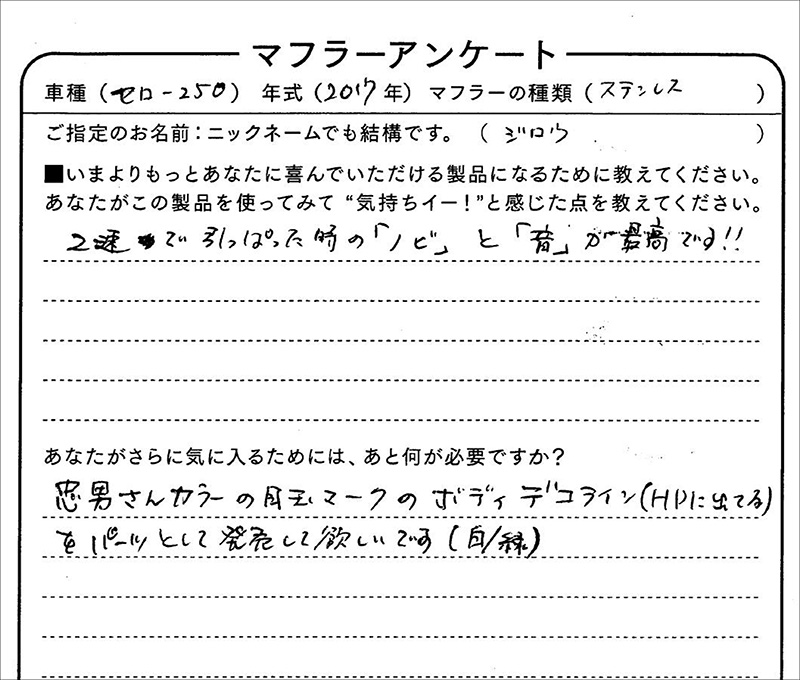 マフラーアンケート
車種(セロー250) 年式(2017年) マフラーの種類(ステンレス)
ご指定のお名前:ニックネームでも結構です。(ジロウ)
■いまよりもっとあなたに喜んでいただける製品になるために教えてください。
あなたがこの製品を使ってみて“気持ちイー!”と感じた点を教えてください。
2速で引っぱった時の「ノビ」と「音」が最高です!!
あなたがさらに気に入るためには、あと何が必要ですか?
忠男さんカラーの目玉マークのボディデコライン(HPに出てる)
をパーツとして発売して欲しいです(白/緑)